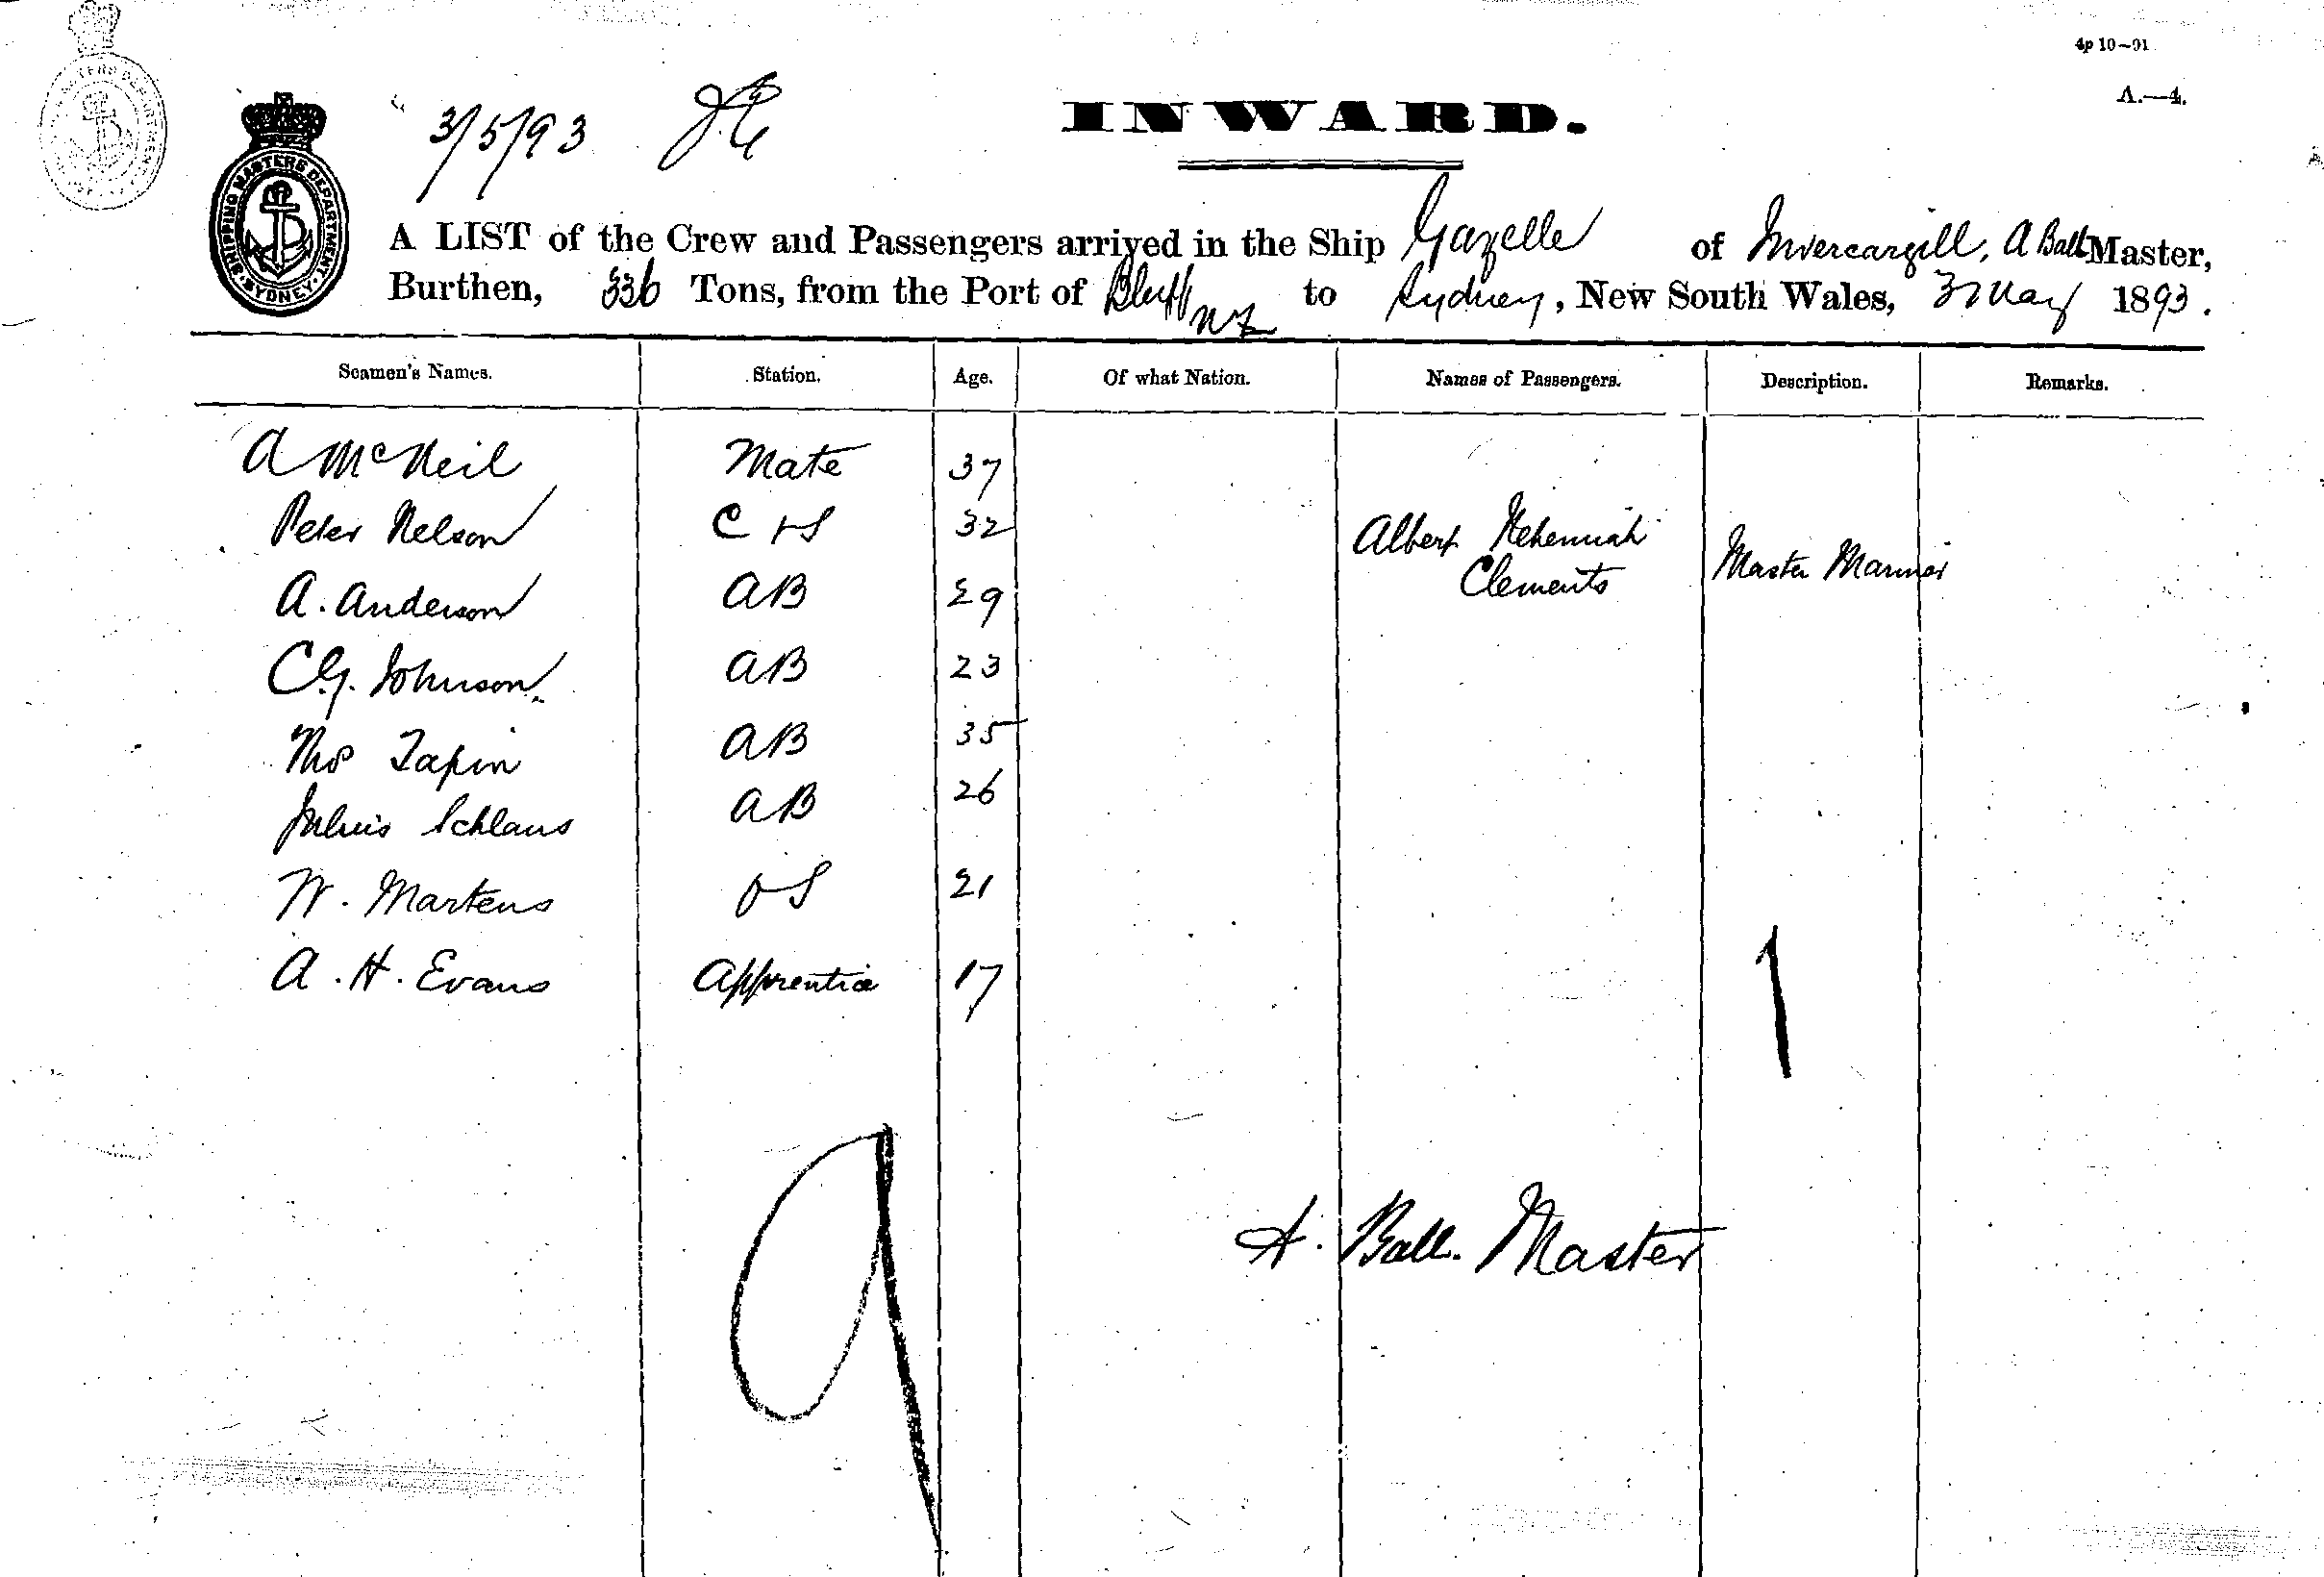 4p 10–91
A.—4.
3/5/93
INWARD.
SHIPPING MASTERS DEPARTMENT SYDNEY
A LIST of the Crew and Passengers arrived in the Ship Gazelle of Invercargill, A Ball Master,
Burthen, 336 Tons, from the Port of Bluff NZ to Sydney, New South Wales, 3 May 1893.
Seamen's Names. Station. Age. Of what Nation. Names of Passengers. Description. Remarks.
A McNeil Mate 37
Peter Nelson C & S 32 Albert Nehemiah Clements Master Mariner
A. Anderson AB 29
C.G. Johnson AB 23
Thos Tapin AB 35
Julius Schlaus AB 26
W. Martens OS 21
A. H. Evans Apprentice 17
1
9
A. Ball. Master